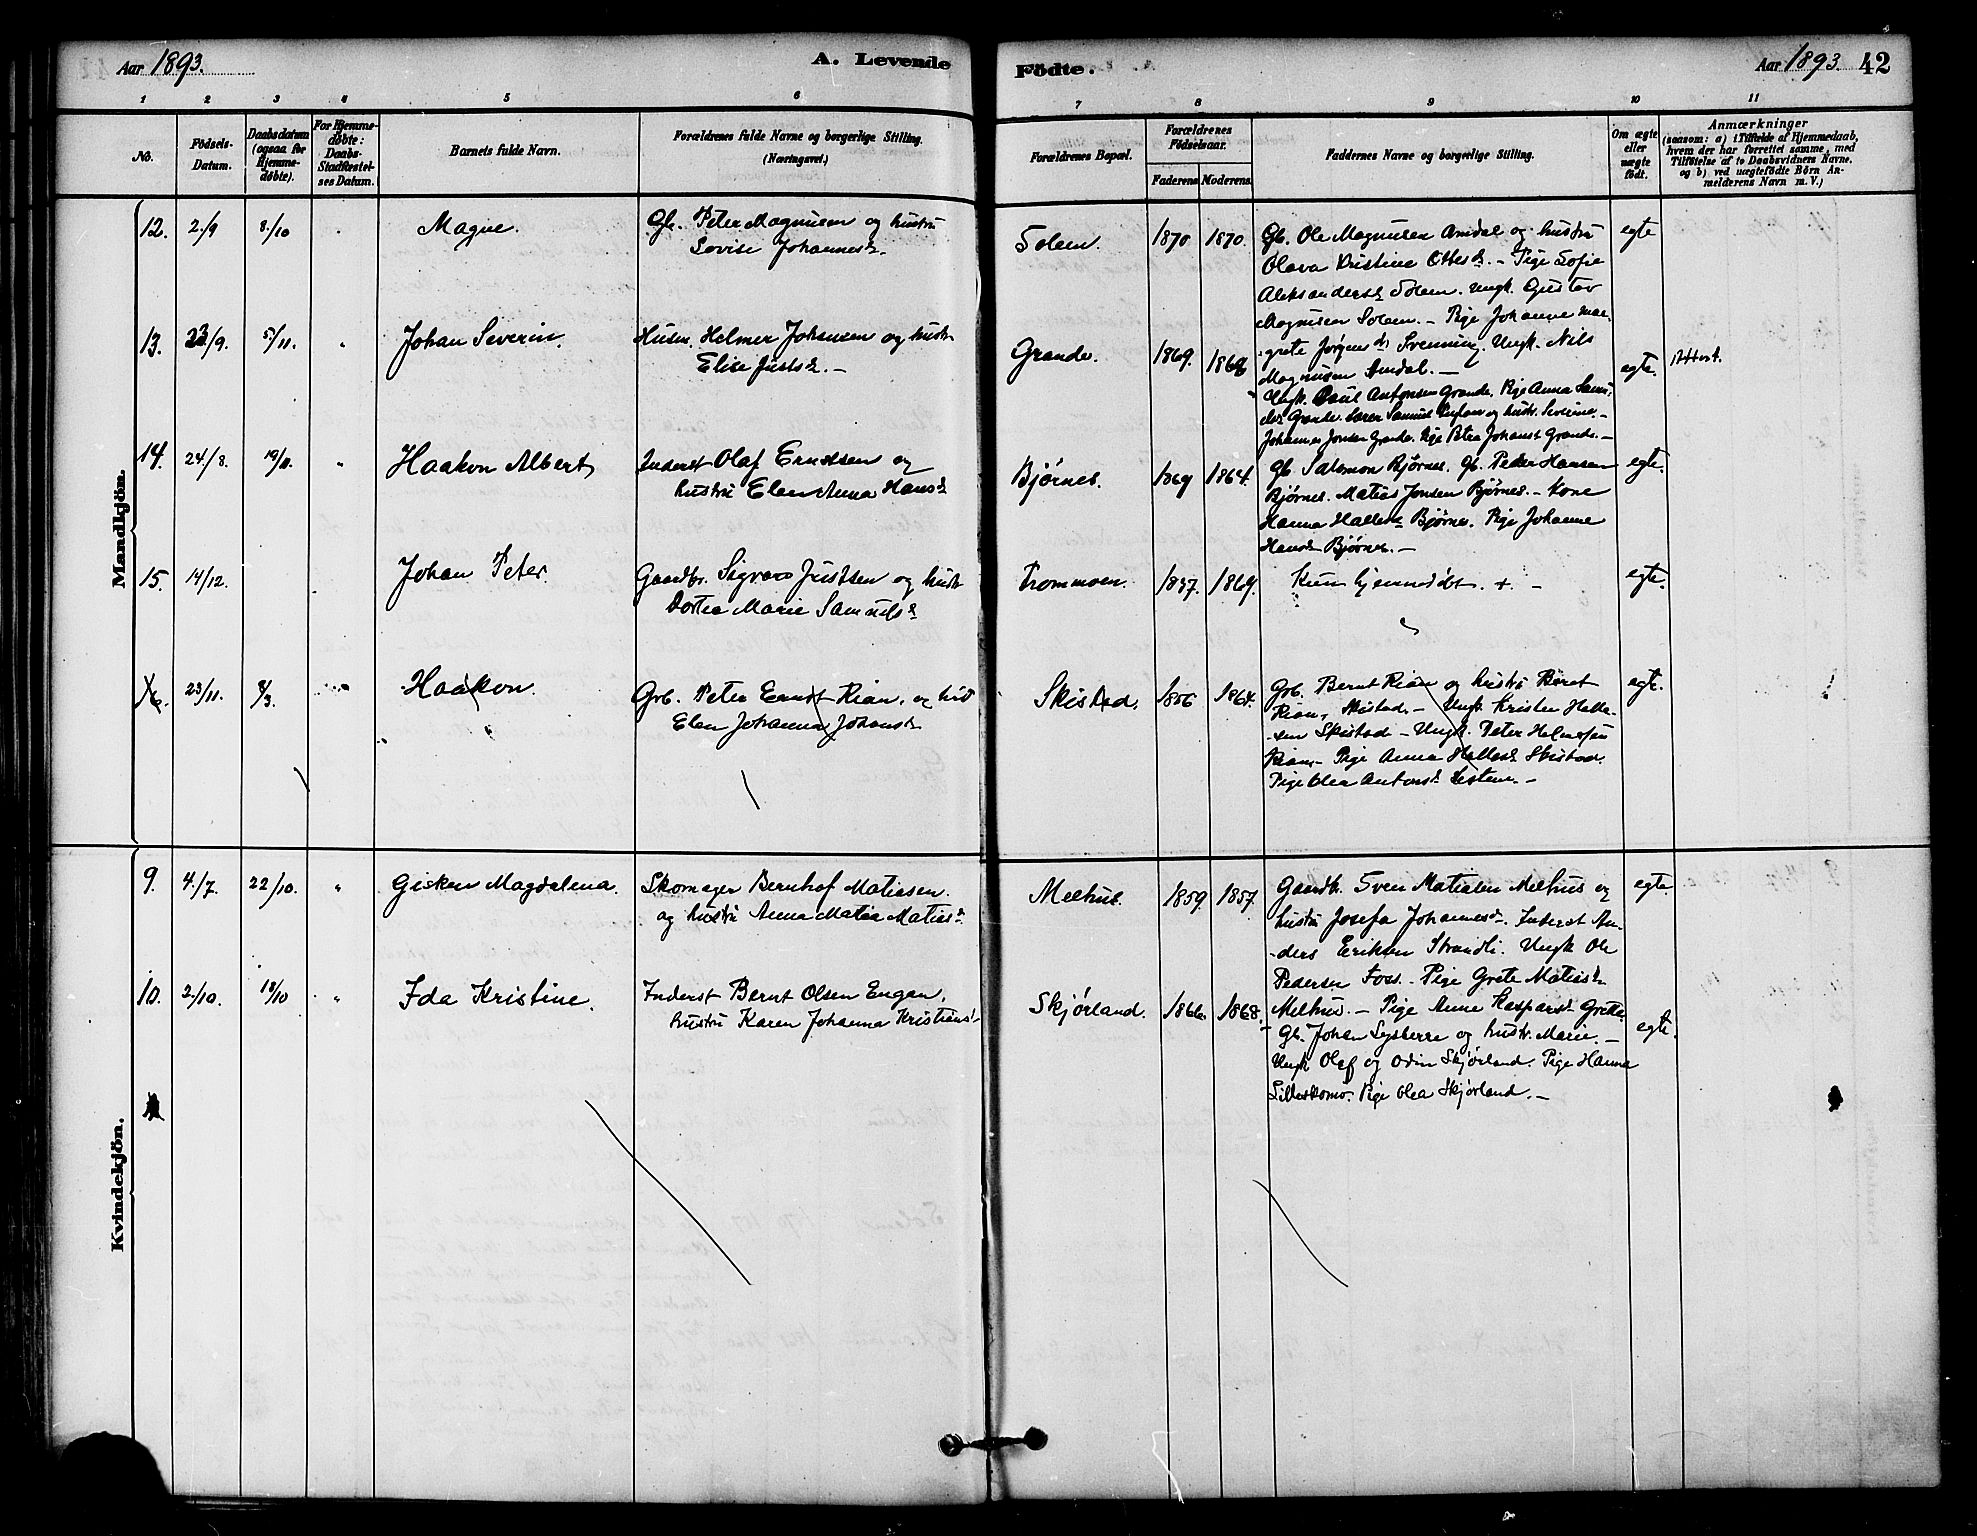 Aar 1893.
A. Levende
Födte.
Aar 1893. 42
1 2 3 4 5 6
7 8 9 10 11
No.
Födsels-
Datum.
Daabsdatum
(ogsaa for
Hjemme-
döbte).
For Hjemme-
döbte:
Daabs-
Stadfæstel-
ses Datum.
Barnets fulde Navn.
Forældrenes fulde Navne og borgerlige Stilling.
(Næringsvei.)
Forældrenes Bopæl.
Forældrenes
Födselsaar.
Faderens Moderens
Faddernes Navne og borgerlige Stilling.
Om ægte
eller
uægte
födt.
Anmærkninger
(saasom: a) i Tilfælde af Hjemmedaab,
hvem der har forrettet samme, med
Tilföielse af to Daabsvidners Navne,
og b) ved uægtefödte Börn An-
melderens Navn m. V.)
Mandkjön.
12. 2/9 8/10 Magne. Gb. Peter Magnusen og hustru
Lovise Johannesd.
Solem. 1870 1870. Gb. Ole Magnusen Amdal og hustru egte
Olava Kristine Ottesd. - Pige Sofie
Aleksandersd. Solem. Ungk. Gustav
Magnusen Solem. - Pige Johanne Mar-
grete Jørgensd. Svenning. Ungk. Nils
Magnusen Amdal. -
13. 23/9. 5/11. " Johan Severin. Husm. Helmer Johansen og hustr
Elise Justsd. -
Grande. 1869. egte.
Ungk. Paul Antonsen Grande. Pige Anna
Grande. Samuel og hustr. Severine. -
Johannes Jonsen Grande. Pige Petra Johansd Grande. -
14. 24/8. 19/11. " Haakon Albert Inderst Olaf Erntsen og
hustru Elen Anna Hansd.
Bjørnes. 1869 1864. Gb. Salomon Bjørnes. Gb. Peder Hansen egte.
Bjørnes. Matias Jonsen Bjørnes. - Kone
Hanna Hallesd. Bjørnes. Pige Johanne
Hansd Bjørnes. -
15. 14/12. Johan Peter. Gaardbr. Justsen og hustr
Dortea Marie Samuelsd.
Trommoen. 1837. 1869. Kun hjemmedøbt. + - egte.
16. 23/11. 8/3. Haakon. Grb. Peter Ernst Rian, og hust
Elen Johanna Johansd.
Skistad. 1856 1864. Grb. Bernt Rian og hustru Beret egte.
Rian, Skistad. - Ungk. Krister Helle-
sen Skistad - Ungk. Peter Helmersen
Rian. - Pige Anna Hellesd. Skistad.
Pige Olea Antonsd. -
Kvindekjön.
9. 4/7. 22/10. " Gisken Magdalena. Skomager Bernhof Matiasen.
og hustru Anna Matea Matiasd.
Melhus. 1859. 1857. Gaardb. Sven Matiasen Melhus og egte
hustru Josefa Johannesd. Inderst An-
ders Eriksen Strandli. Ungk Ole
Pedersen Foss. - Pige Grete Matiasd.
Melhus. - Pige Anne Kaspersd.
10. 2/10. 18/10 " Ida Kristine. Inderst Bernt Olsen Engan,
hustru Karen Johanna Kristiansd.
Skjørland. 1866. 1868. egte.
Gb. Johan og hustr. Marie. -
Ungk Olaf og Odin Skjørland. Pige Hanna
Pige Olea Skjørland. -